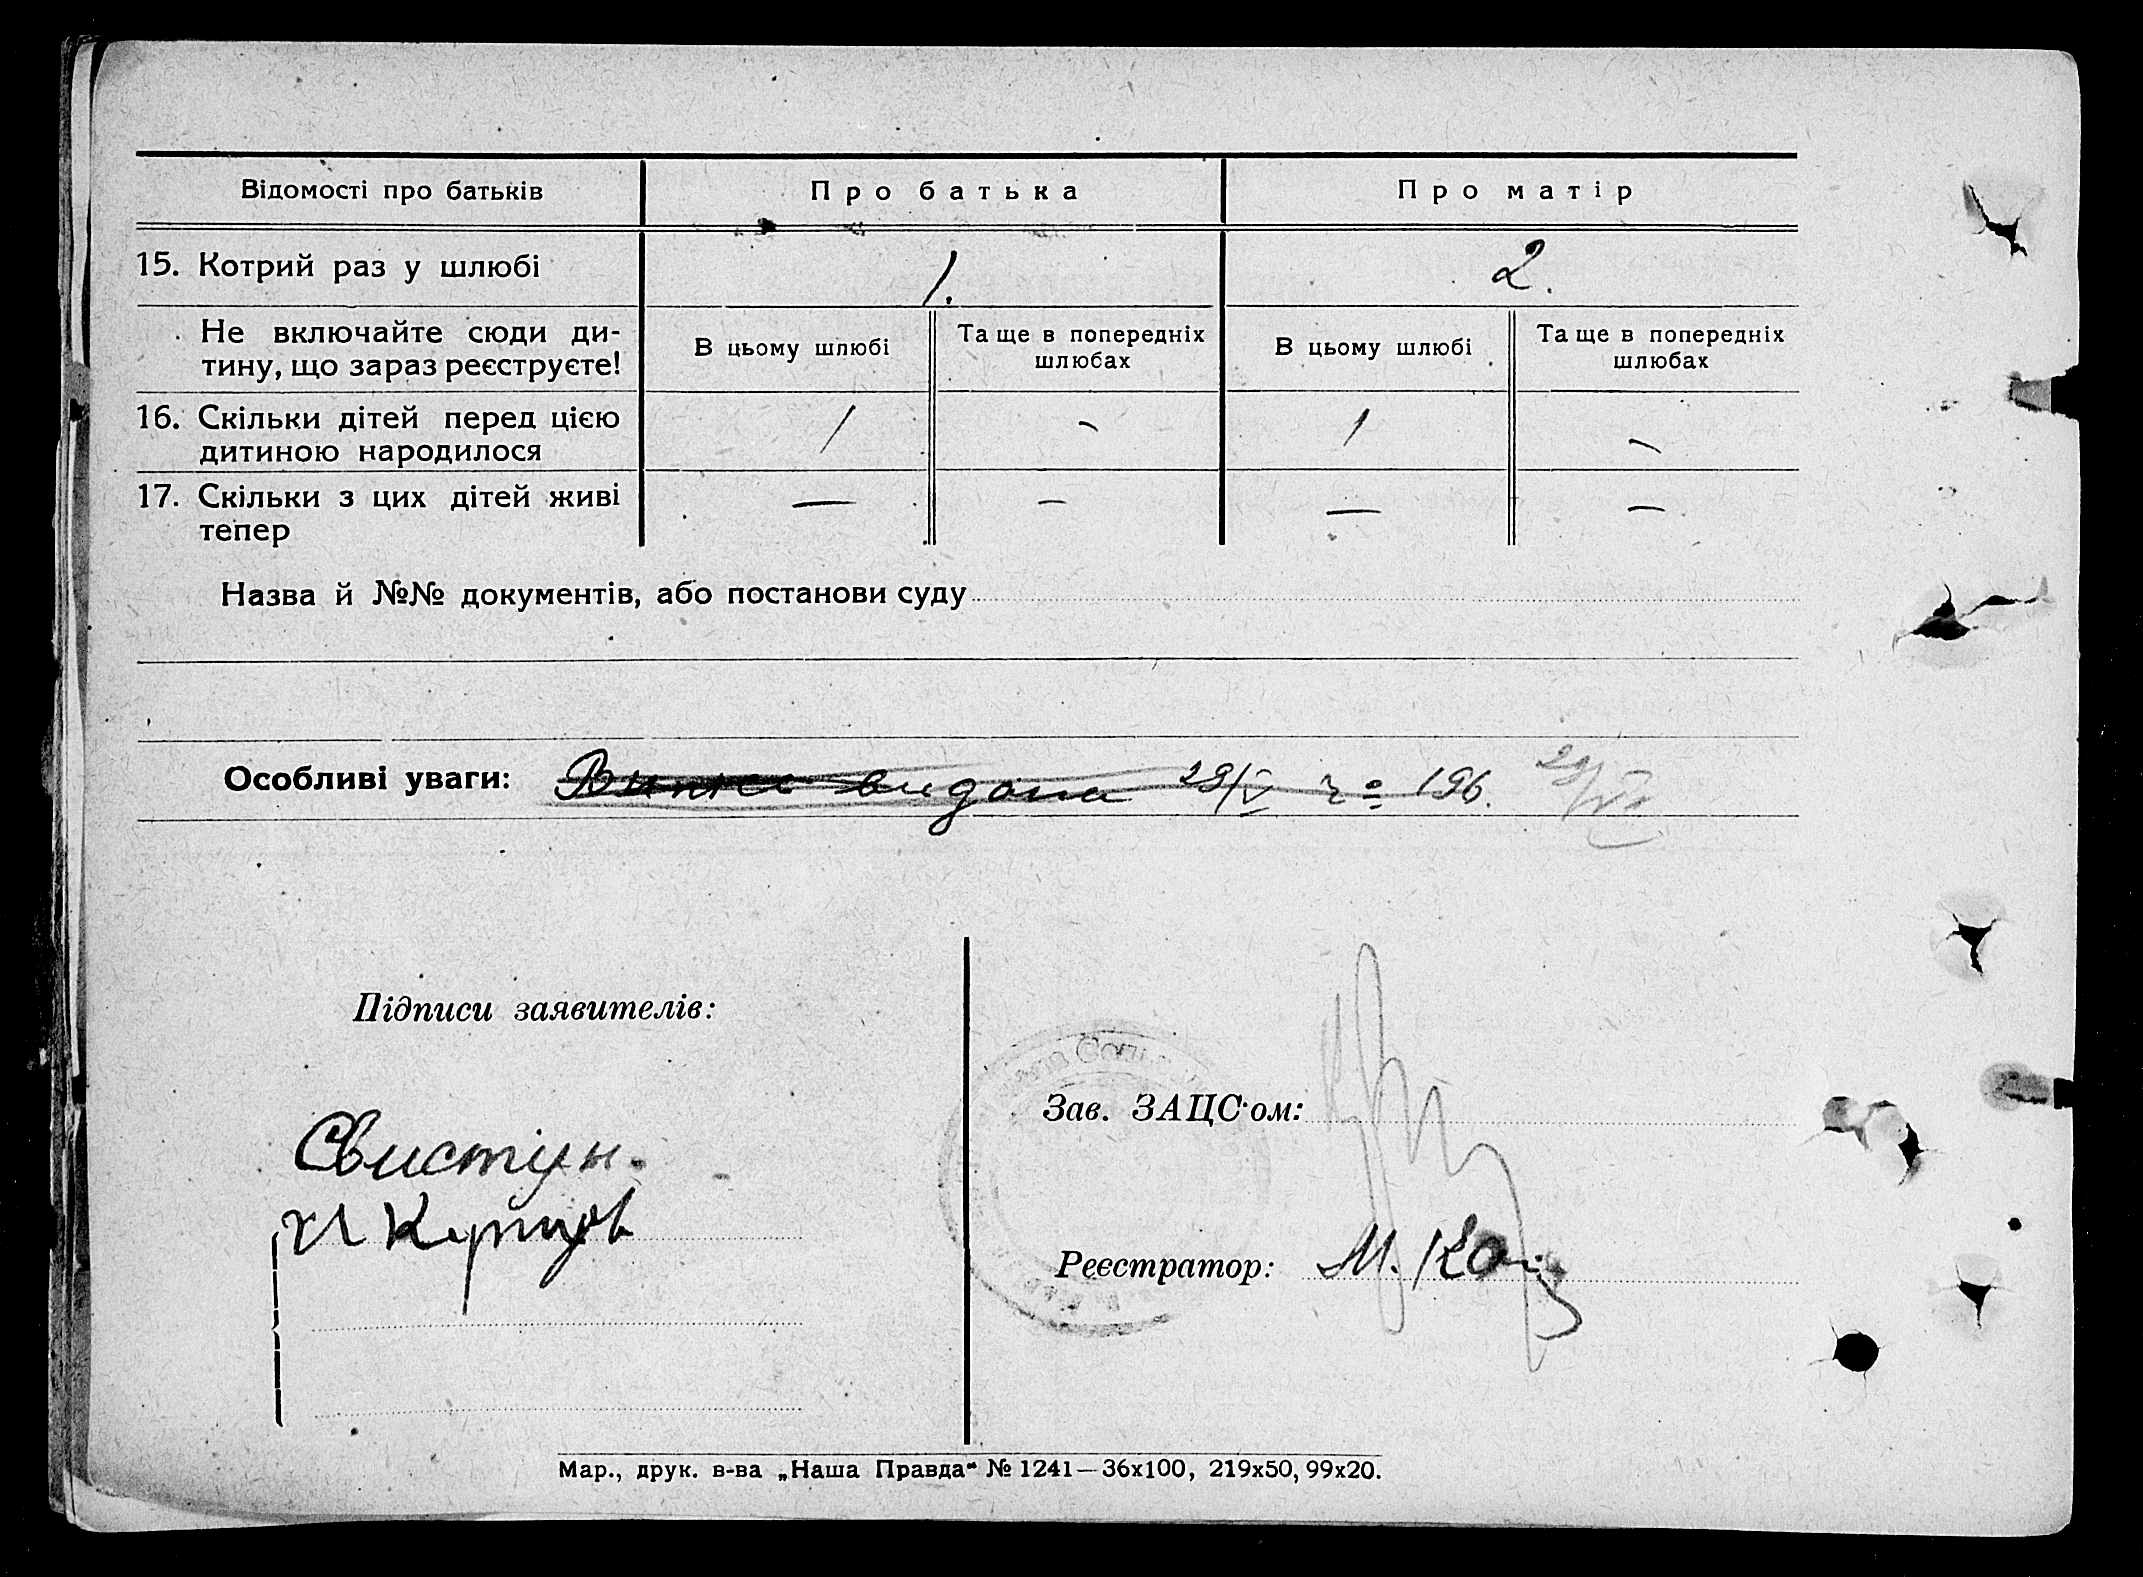 Відомості про батьків
Про батька
Про матір
15. Котрий раз у шлюбі
1.
2.
Не включайте сюди ди-
тину, що зараз реєструєте!
В цьому шлюбі
Та ще в попередніх
шлюбах
В цьому шлюбі
Та ще в попередніх
шлюбах
16. Скільки дітей перед цією
дитиною народилося
1
-
1
-
17. Скільки з цих дітей живі
тепер
—
—
—
—
Назва й №№ документів, або постанови суду
Особливі уваги: видана 29/V 196. 29/VI
Підписи заявителів:
Свистун.
Зав. ЗАЦС'ом:
Реєстратор: М.
Мар., друк. в-ва „Наша Правда" № 1241—36х100, 219х50, 99х20.